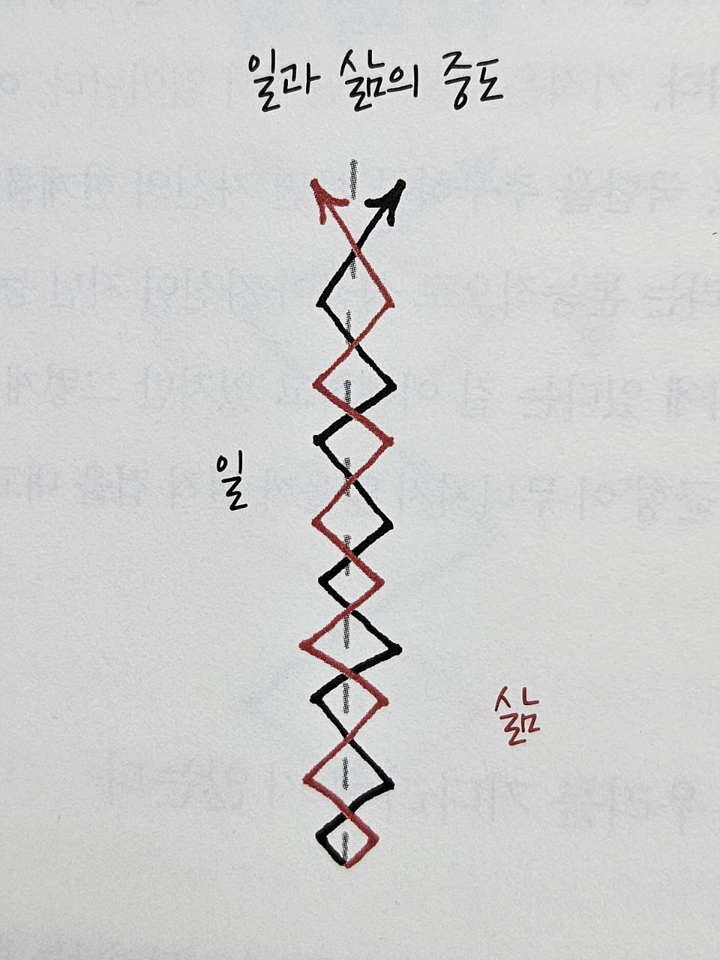 일과 삶의 중도
일
삶